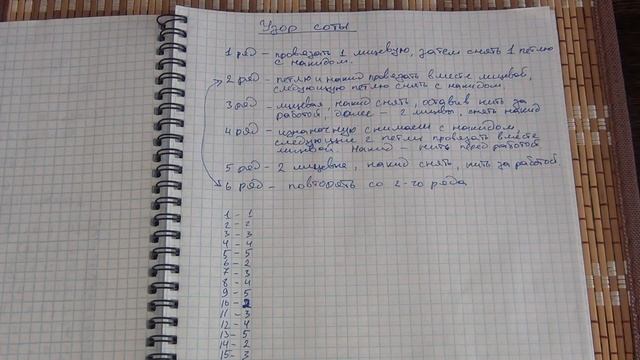 Узор соты
1 ряд - провязать 1 лицевую, затем снять 1 петлю
с накидом.
2 ряд - петлю и накид провязать вместе лицевой,
следующую петлю снять с накидом.
3 ряд - лицевая, накид снять, оставив нить за
работой, далее - 2 лицевы, снять накид
4 ряд - изнаночную снимаем с накидом,
следующие 2 петли провязать вместе
лицевой. Накид - нить перед работой
5 ряд - 2 лицевые, накид снять, нить за работой
6 ряд - повторять со 2-го ряда
1 - 1
2 - 2
3 - 3
4 - 4
5 - 5
6 - 2
7 - 3
8 - 4
9 - 5
10 - 2
11 - 3
12 - 4
13 - 5
14 - 2
15 - 3